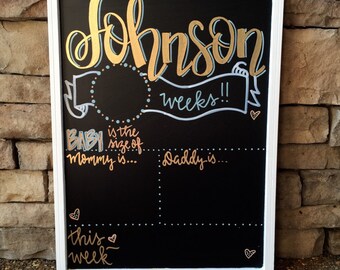 Johnson
weeks!!
BABY is the
size of
Mommy is...
Daddy is...
this
week